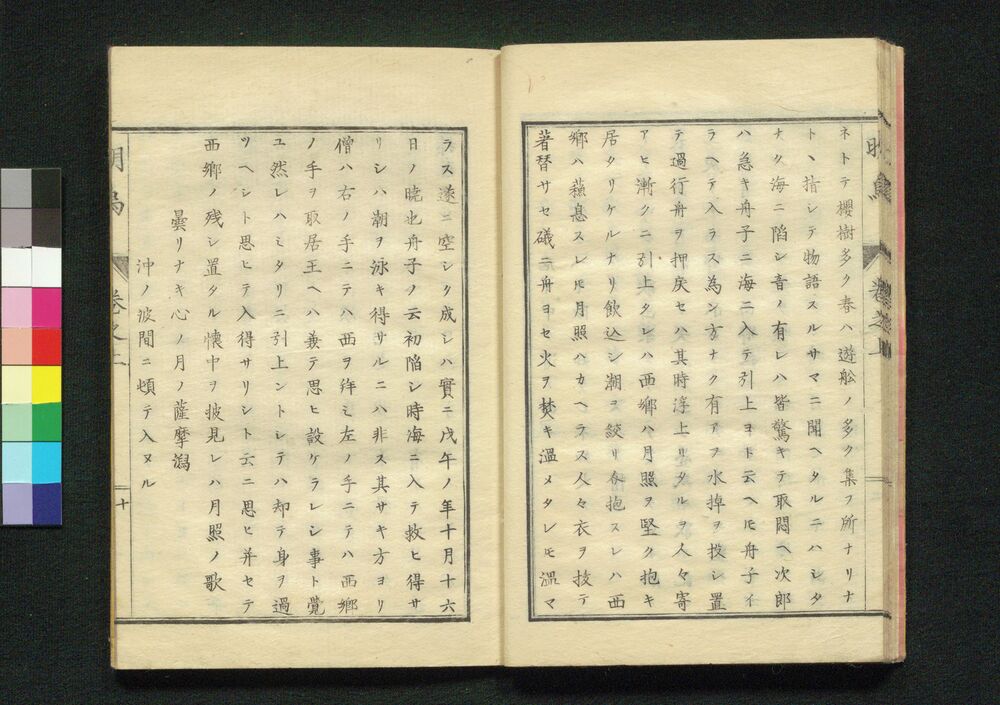 ネトテ櫻樹多ク春ハ遊舩ノ多ク集フ所ナリナ
ト丶指シテ物語スルサマニ聞ヘタルニハシタ
ナク海ニ陷シ音ノ有レハ皆驚キテ取悶ヘ次郎
ハ急キ舟子ニ海ニ入テ引上ヨト云ヘ𪜈舟子イ
ラヘテ入ラス為ン方ナク有アフ水掉ヲ投シ置
テ過行舟ヲ押戻セハ其時浮上リタルヲ人々寄
アヒ漸クニ引上タレハ西鄉ハ月照ヲ堅ク抱キ
居タリケルナリ飮込シ潮コ絞リ夲抱スレハ西
鄉ハ蘓息スレ𪜈月照ハカヘラス人々衣ヲ技テ
著替サセ礒ニ舟ヨセ火ヲ焚キ溫メタレ𪜈溫マ
ラス遂ニ空シク成シハ實ニ戊午ノ年十月十六
日ノ曉也舟子ノ云初陷シ時海ニ入テ救ヒ得サ
リシハ潮ヲ泳キ得サルニハ非ス其サキ方ヨリ
僧ハ右ノ手ニテハ西ヲ拜ミ左ノ手ニテハ西鄉
ノ手ヲ取居王ヘハ義テ思ヒ設ケラレシ事ト覺
ユ然レハミタリニ引上ントシテハ却テ身ヲ過
ツヘシト思ヒテ入得サリシト云ニ思ヒ并セテ
西鄉ノ残シ置タル懐中ヲ披見レハ月照ノ歌
曇リナキ心ノ月ノ薩摩潟
沖ノ波間ニ頓テ入ヌル
卷之上
十